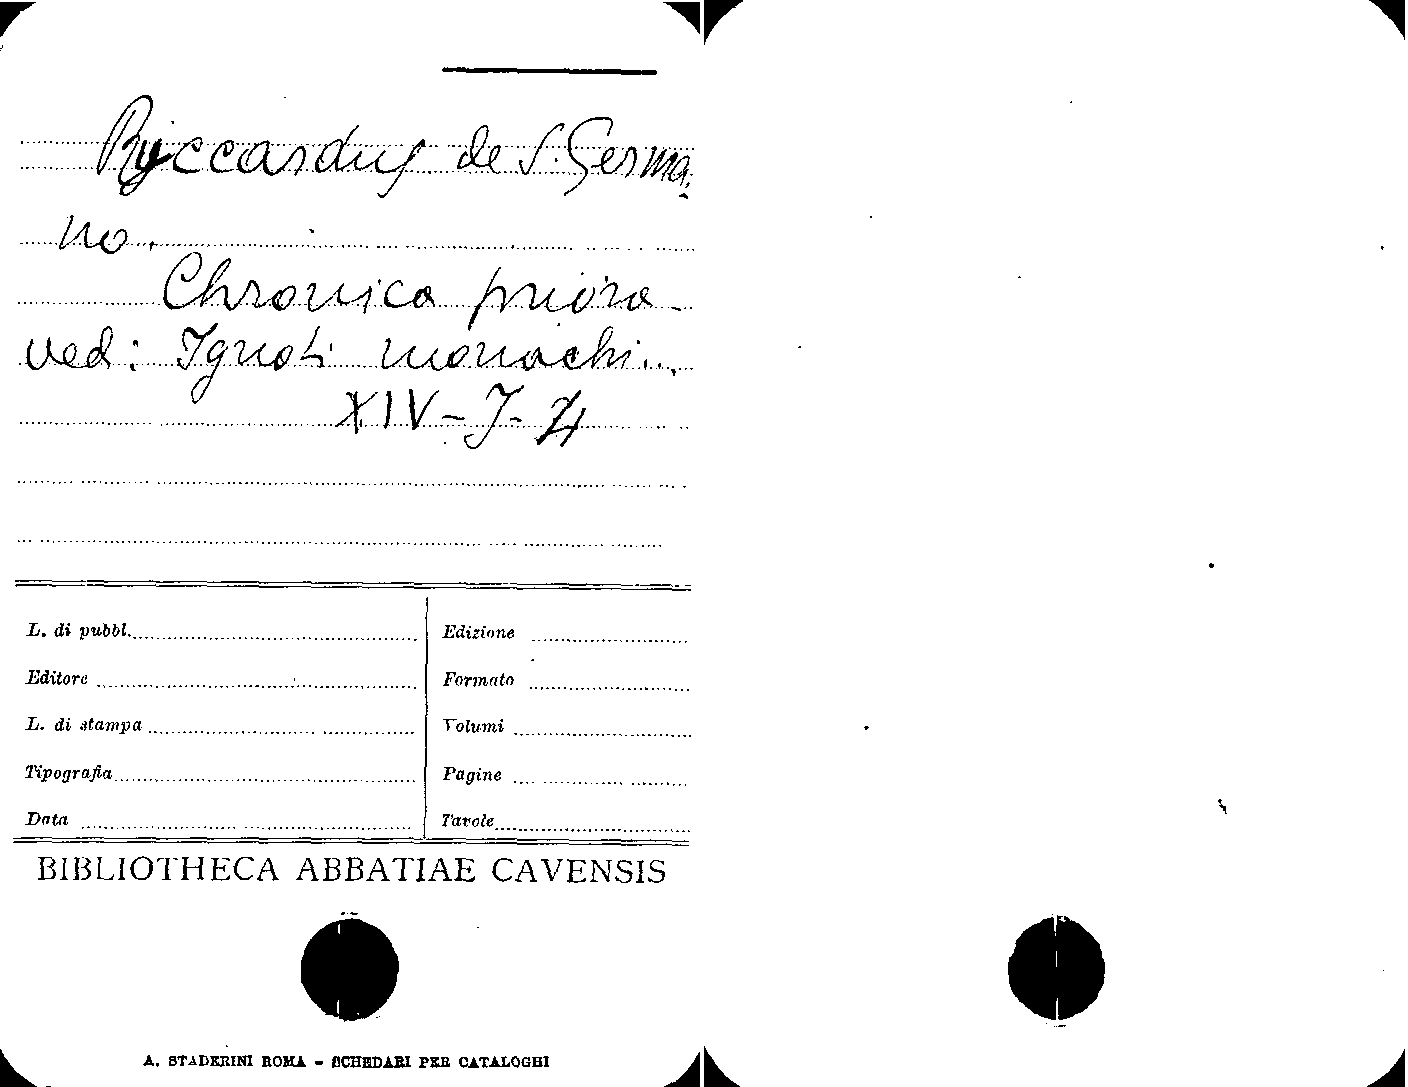 Ryccardus de S. Germa-
no.
Chronica priora
ved: Ignoti monachi...
XIV-J-
L. di pubbl.
Edizione
Editore
Formato
L. di stampa
Volumi
Tipografia
Pagine
Data
Tavole
BIBLIOTHECA ABBATIAE CAVENSIS
A. STADERINI ROMA - SCHEDARI PER CATALOGHI